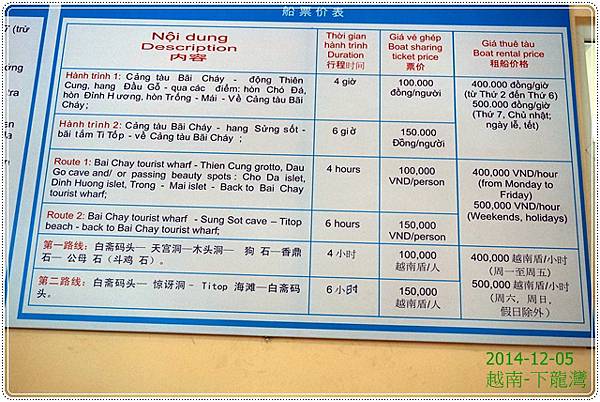 船票价表
Nội dung
Description
内容
Thời gian
hành trình
Duration
行程时间
Giá vé ghép
Boat sharing
ticket price
票价
Giá thuê tàu
Boat rental price
租船价格
Hành trình 1: Cảng tàu Bãi Cháy - động Thiên
Cung, hang Đầu Gỗ - qua các điểm: hòn Chó Đá,
hòn Đỉnh Hương, hòn Trống - Mái - Về Cảng tàu Bãi
Cháy;
4 giờ
100.000
đồng/người
400.000 đồng/giờ
(từ Thứ 2 đến Thứ 6)
500.000 đồng/giờ
(Thứ 7, Chủ nhật;
ngày lễ, tết)
Hành trình 2: Cảng tàu Bãi Cháy - hang Sửng sốt -
bãi tắm Ti Tốp - về Cảng tàu Bãi Cháy ;
6 giờ
150.000
Đồng/người
Route 1: Bai Chay tourist wharf - Thien Cung grotto, Dau
Go cave and/ or passing beauty spots : Cho Da islet,
Dinh Huong islet, Trong - Mai islet - Back to Bai Chay
tourist wharf;
4 hours
100,000
VND/person
400,000 VND/hour
(from Monday to
Friday)
500,000 VND/hour
(Weekends, holidays)
Route 2: Bai Chay tourist wharf - Sung Sot cave – Titop
beach - back to Bai Chay tourist wharf;
6 hours
150,000
VND/person
第一路线：白斋码头— 天宫洞—木头洞— 狗 石—香鼎
石— 公母 石（斗鸡 石）。
4 小时
100,000
越南盾/人
400,000 越南盾/小时
(周一至周五)
500,000 越南盾/小时
(周六, 周日,
假日除外)
第二路线：白斋码头— 惊讶洞- Titop 海滩—白斋码
头。
6 小时
150,000
越南盾/人
2014-12-05
越南-下龍灣